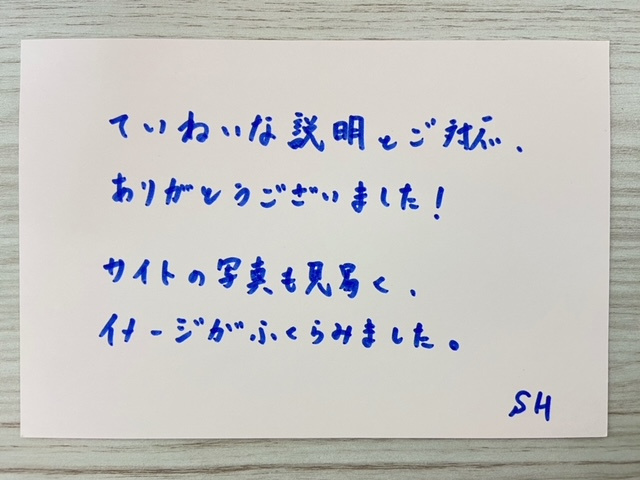 ていねいな説明とご対応、
ありがとうございました!
サイトの写真も見易く、
イメージがふくらみました。
SH